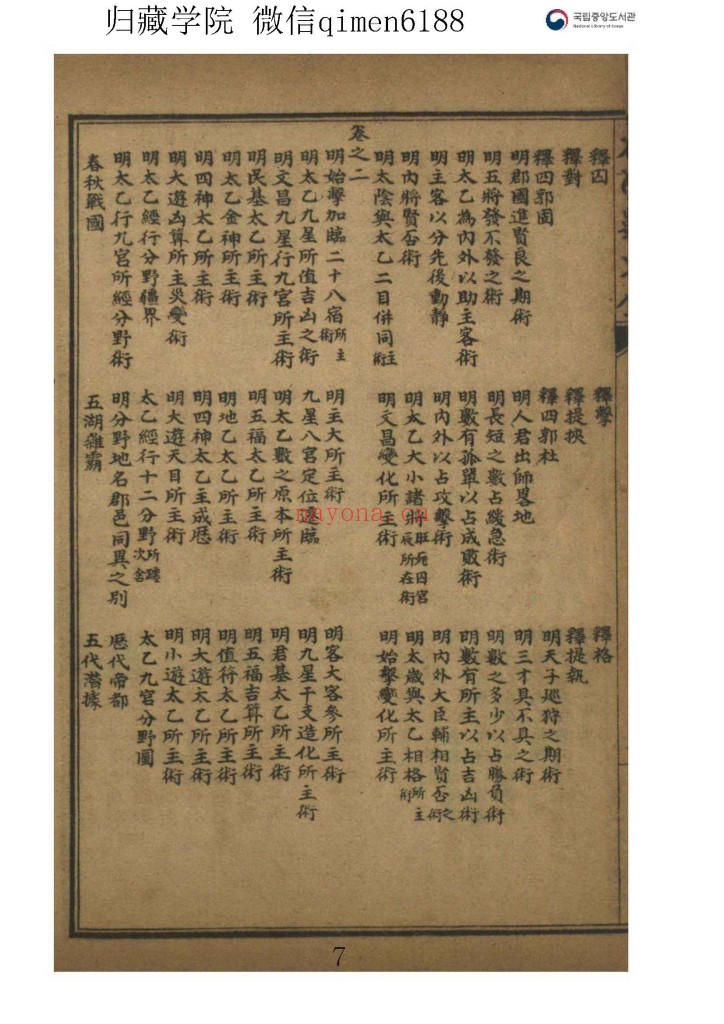 归藏学院 微信qimen6188
국립중앙도서관
National Library of Korea
釋囚 釋擊 釋格
釋對 釋提挾 釋提執
釋四郭固 釋四郭杜 明天子廵狩之期術
明郡國進賢良之期術 明人君出師畧地 明三才具不具之術
明五將發不發之術 明長短之數占緩急術 明數之多少以占勝負術
明太乙為內外以助主客術 明數有孤單以占成敗術 明數有所主以占吉凶術
明主客以分先後動静 明內外以占攻擊術 明內外大臣輔相賢否之術
明內將賢否術 明太乙大小諸將旺死囚官辰所在術 明太歲與太乙相格所主術
明太陰與太乙二目併同主術 明文昌變化所主術 明始擊變化所主術
卷之二
明始擊加臨二十八宿所主術 明主大所主術 明客大客參所主術
明太乙九星所值吉凶之術 九星八宮定位遞臨 明九星干支造化所主術
明文昌九星行九宮所主術 明太乙數之原本所主術 明君基太乙所主術
明民基太乙所主術 明五福太乙所主術 明五福吉算所主術
明太乙金神所主術 明地乙太乙所主術 明值符太乙所主術
明四神太乙所主術 明四神太乙主成厯 明大遊太乙所主術
明大遊凶算所主災變術 明大遊天目所主術 明小遊太乙所主術
明太乙經行分野疆界 太乙經行十二分野所躔次舍 太乙九宮分野圖
明太乙行九宮所經分野術 明分野地名郡邑同異之别 厯代帝都
春秋戰國 五湖雜霸 五代潛據
nayona.cn
7